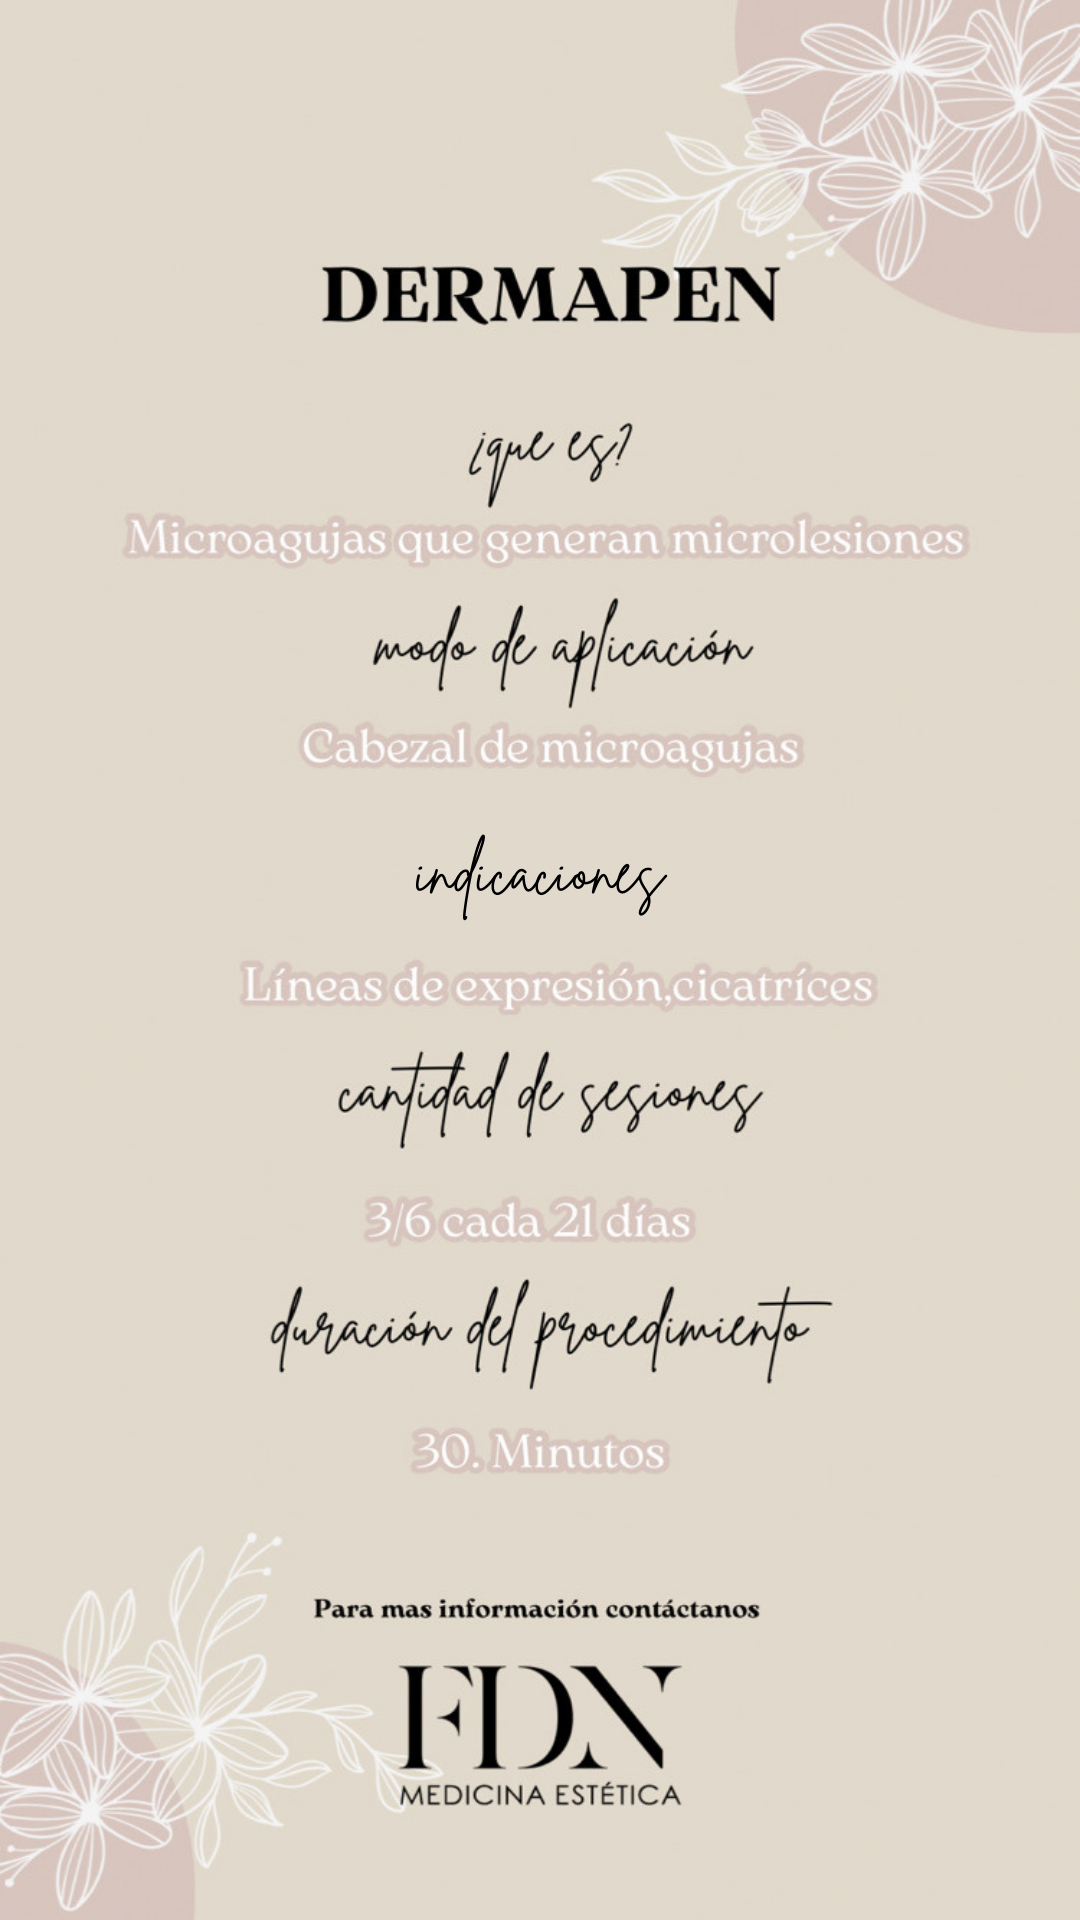 DERMAPEN
¿que es?
Microagujas que generan microlesiones
modo de aplicación
Cabezal de microagujas
indicaciones
Líneas de expresión,cicatríces
cantidad de sesiones
3/6 cada 21 días
duración del procedimiento
30. Minutos
Para mas información contáctanos
FDN
MEDICINA ESTÉTICA